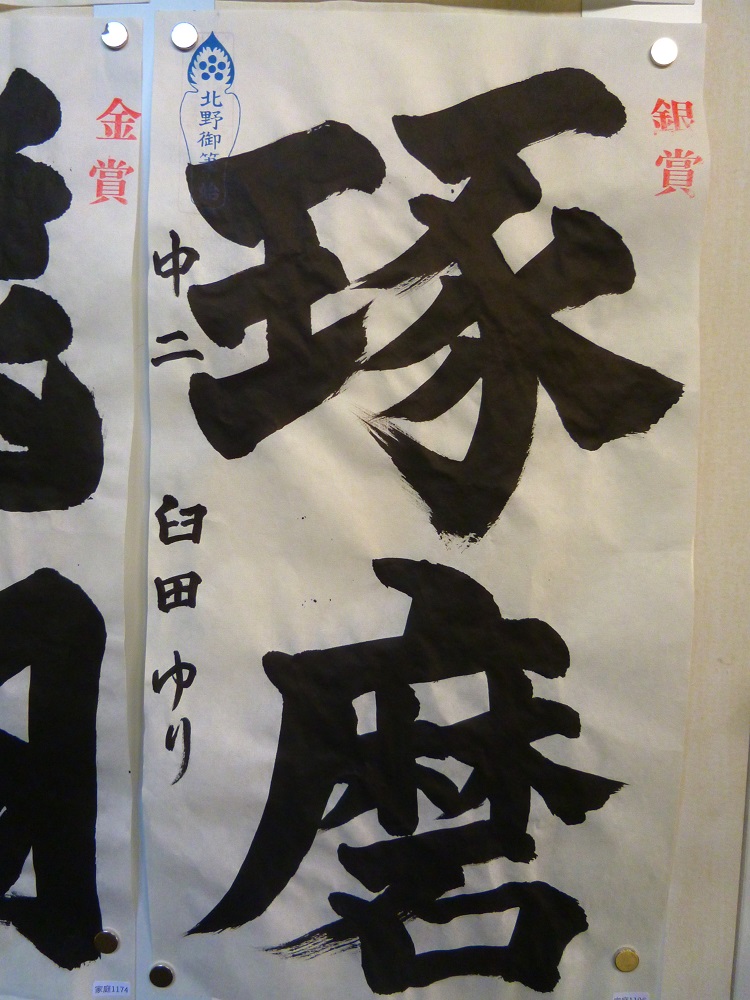 銀賞
琢磨
北野御筆始
中二 臼田ゆり
金賞
家庭1174